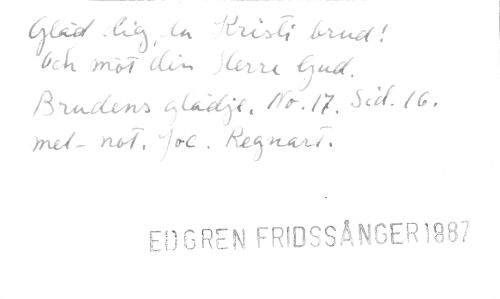 Gläd dig, du Kristi brud!
Och möt din Herre Gud.
Brudens glädje. No. 17. Sid. 16.
mel- not. Joc. Regnart.
EDGREN FRIDSSÅNGER 1887